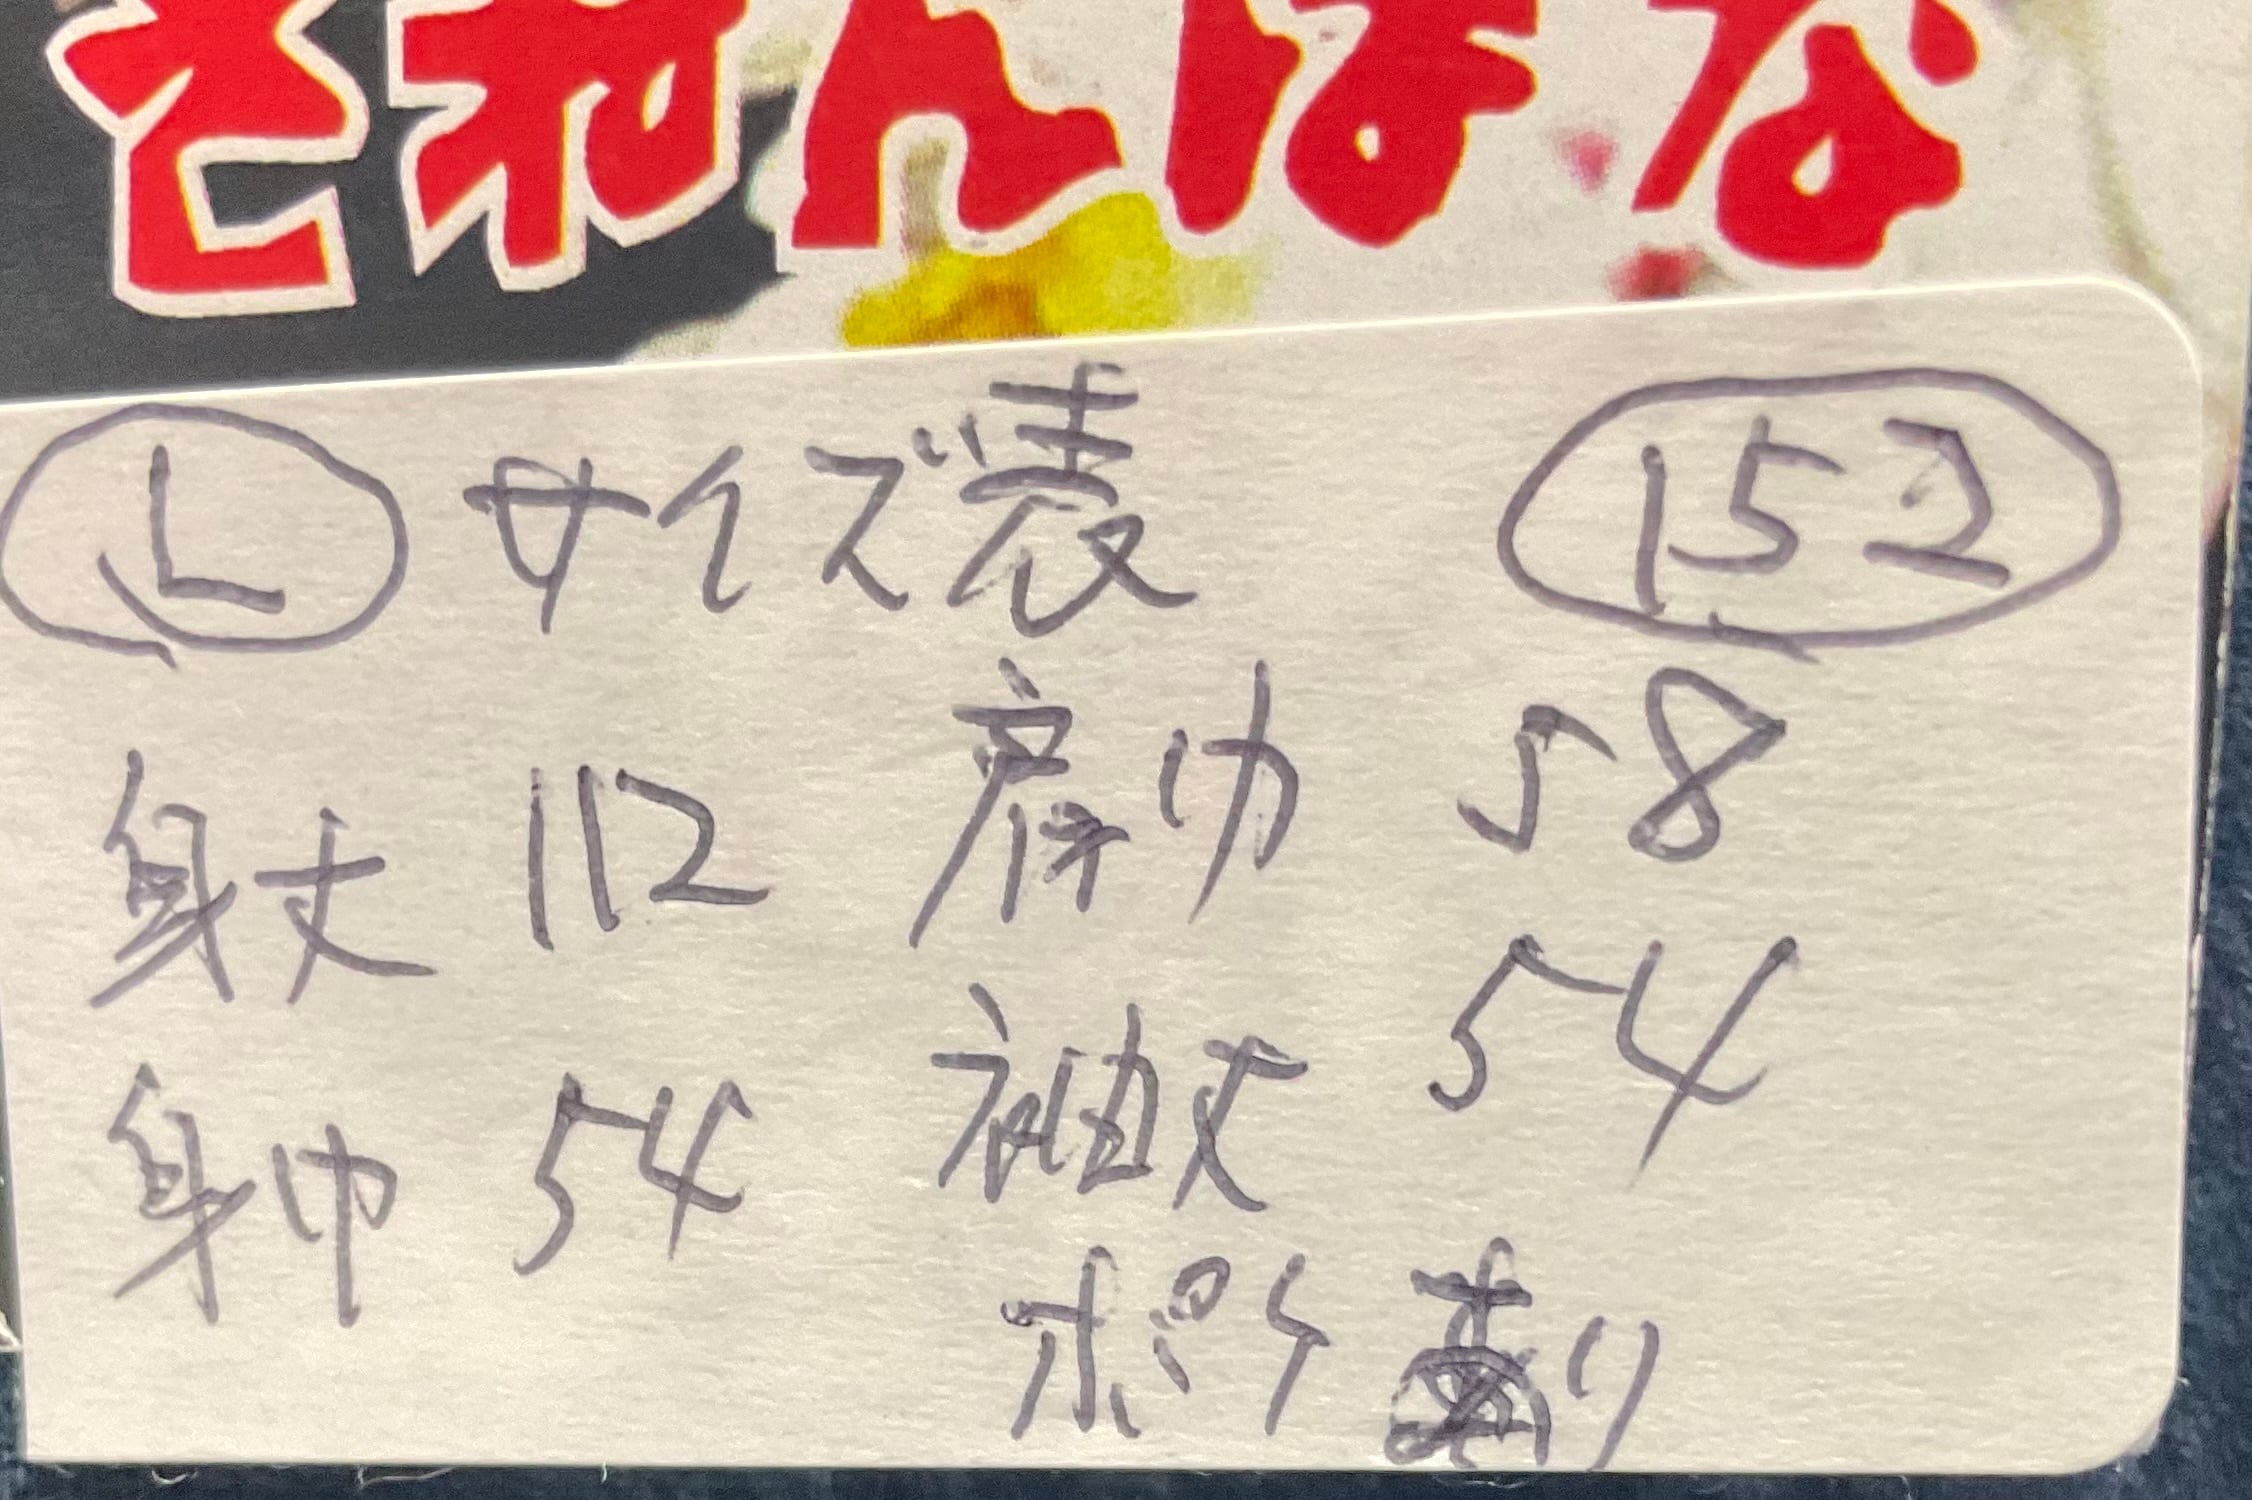 さねんばな
L サイズ表 152
身丈 112 肩巾 58
身巾 54 袖丈 54
ポケあり